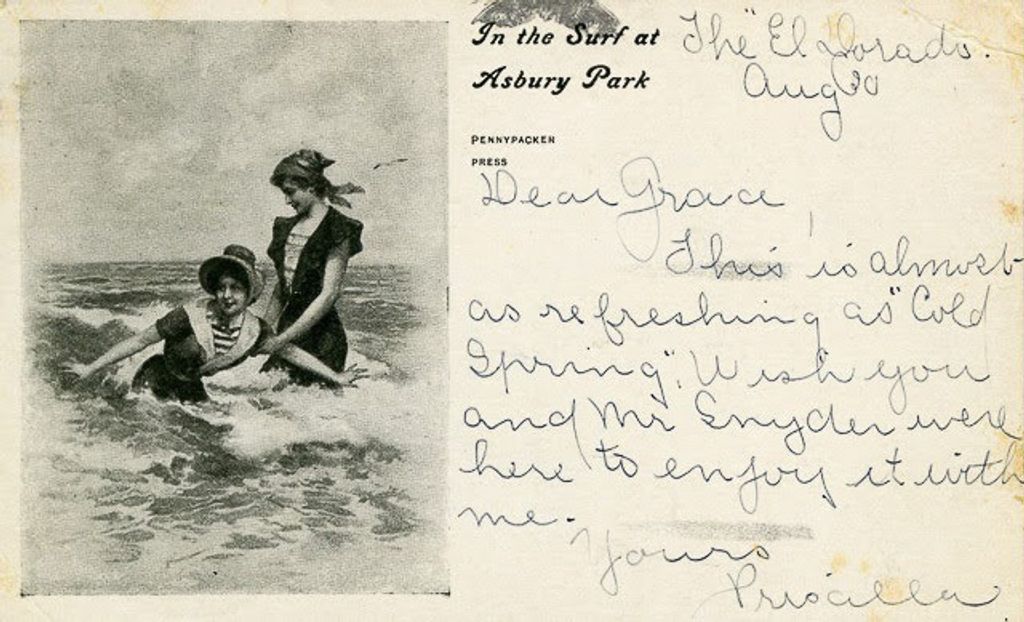 In the Surf at
Asbury Park
PENNYPACKER
PRESS
"The" El Dorado.
Aug 30
Dear Grace,
This is almost
as refreshing as "Cold
Spring". Wish you
and Mr Snyder were
here to enjoy it with
me.
Yours
Priscilla